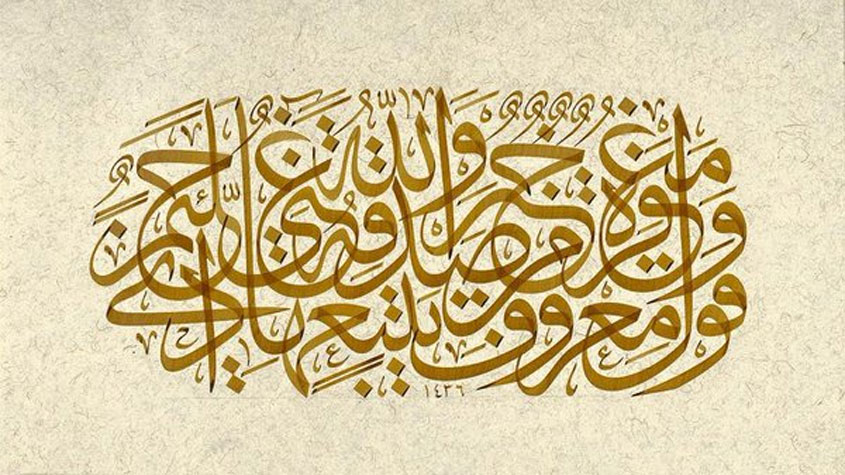 قول معروف ومغفرة خير من صدقة يتبعها أذى والله غني حليم
١٤٣٦